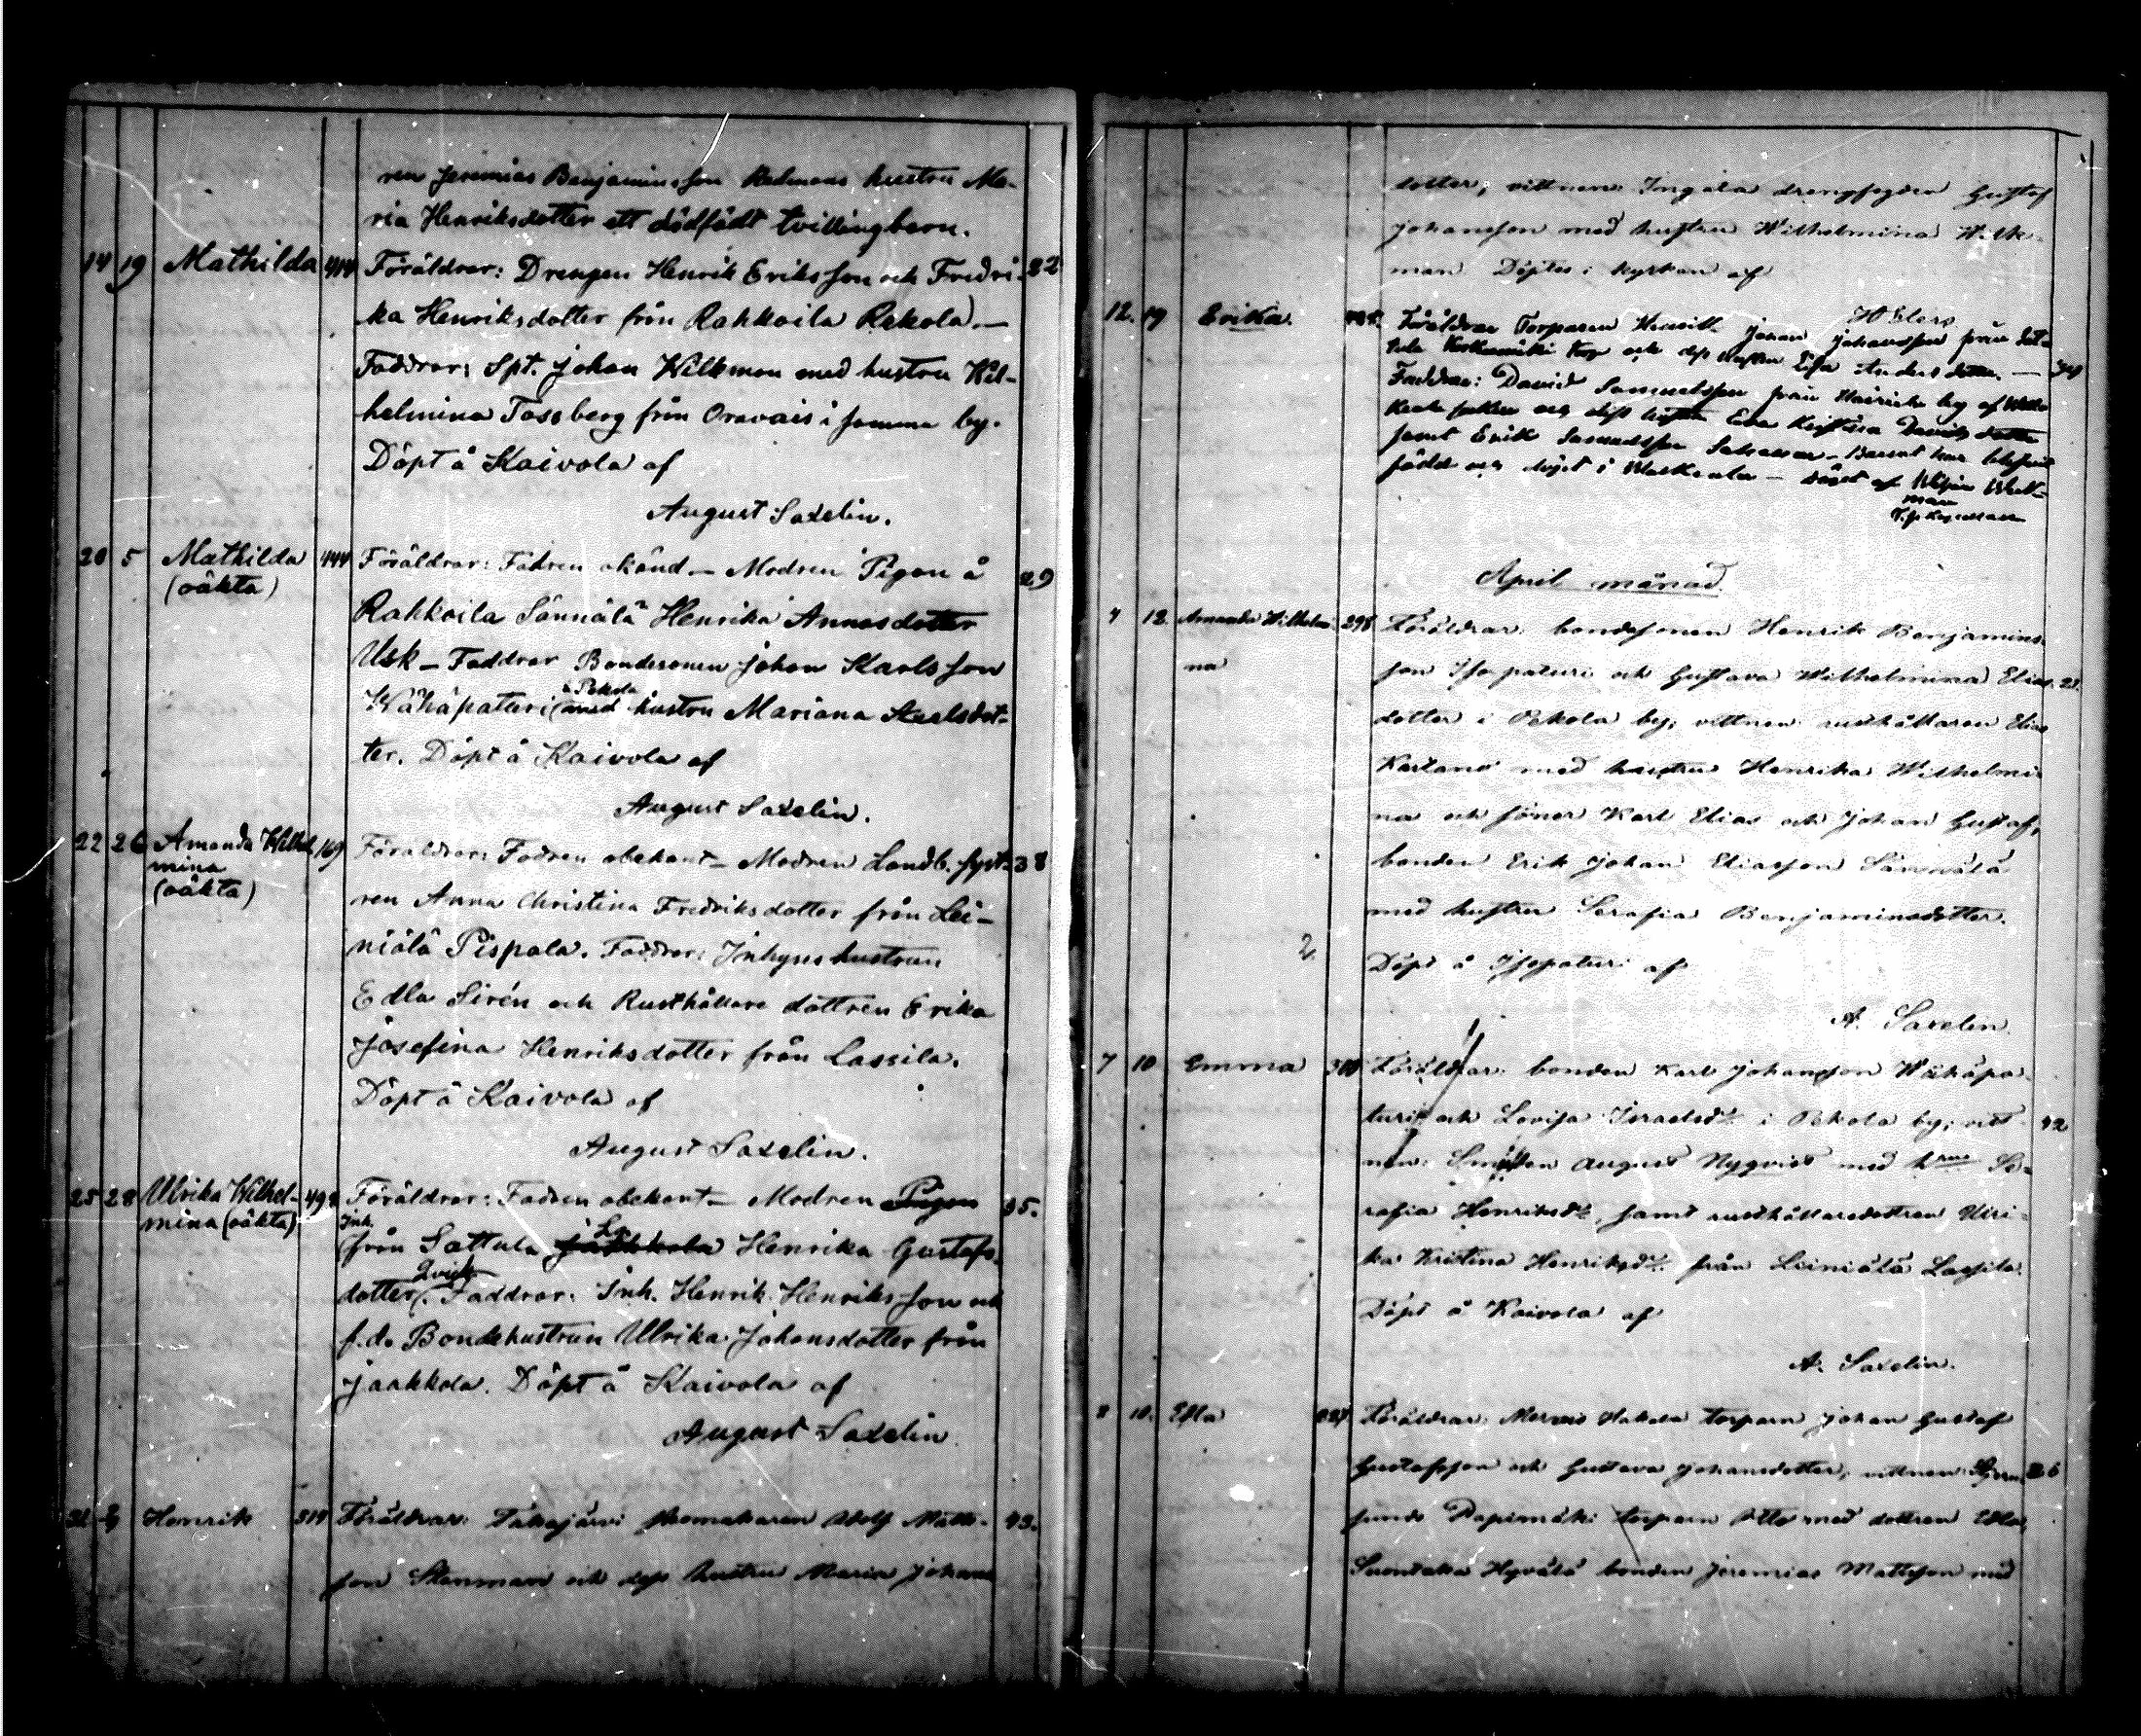 ren Jeremias Benjaminsson Redmans hustru Ma-
ria Henriksdotter ett dödfödt tvillingbarn.
14 19 Mathilda 414 Föräldrar: Drengen Henrik Eriksson och Fredri- 22
ka Henriksdotter från Rahkoila Rekola.—
Faddrar: Spt. Johan Wilkman med hustru Wil-
helmina Tossberg från Oravais i samma by.
Döpt å Kaivola af
August Saxelin.
20 5 Mathilda 444 Föräldrar: Fadren okänd — Modren Pigan å 29
(oäkta)
Rahkoila Sännälä Henrika Annasdotter
Usk — Faddrar Bondesonen Johan Karlsson
å Pekola
Wähäpaturi med hustru Mariana Axelsdot-
ter. Döpt å Kaivola af
August Saxelin.
22 26 Amanda Wilhel 169 Föräldrar: Fadren obekant — Modren Landb. syst- 38
mina
(oäkta)
ren Anna Christina Fredriksdotter från Lei-
niälä Pispala. Faddrar: Inhyses hustrun
Edla Sirén och Rusthållare dottren Erika
Josefina Henriksdotter från Lassila.
Döpt å Kaivola af
August Saxelin.
25 28 Ulrika Wilhel- 498 Föräldrar: Fadren obekant — Modren Pigan 35.
mina (oäkta)
Inh.
från Sattula Jaakkola Henrika Gustafs-
Qvick
dotter. Faddrar: Inh. Henrik Henriksson och
f.d. Bondehustrun Ulrika Johansdotter från
Jaakkola. Döpt å Kaivola af
August Saxelin
Henrik 319 Föräldrar: Takajärvi skomakaren Adolf Matts- 43.
son Stenman och dess hustru Maria Johans
dotter, vittnen: Ingala drengsonen Gustaf
Johansson med hustru Wilhelmina Wilk-
man Döptes i kyrkan af
12. 19 Erika. Föräldrar Torparen Johan Johansson från
torp och dess hustru Eva Anders dotter. —
Faddrar: David Samuelsson från by af
och dess hustru Eva Kristina Davids dotter
samt Erik Samuelsson Barnet har blifvit
född och döpt i — döpt af
April månad.
4 12 Amanda Wilhelmi- 298 Föräldrar: bondesonen Henrik Benjamins-
na
son Isopaturi och Gustava Wilhelmina Elias- 21.
dotter i Pekola by; vittnen: rusthållaren Elias
Kartano med hustru Henrika Wilhelmi-
na och söner Karl Elias och Johan Gustaf,
bonden Erik Johan Eliasson Sännälä
med hustru Serafia Benjaminsdotter.
2
Döpt å Isopaturi af
A. Saxelin.
7 10 Emma Föräldrar: bonden Karl Johansson Wähäpa-
turi och Lovisa Israelsd:r i Pekola by; vitt- 42
nen: Smeden August Nyqvist med hru Se-
rafia Henriksd:r, samt rusthållaredottren Ulri-
ka Kristina Henriksd:r från Leiniälä Lassila.
Döpt å Kaivola af
A. Saxelin.
8 10. Föräldrar: torparn Johan Gustaf
Gustafsson och Gustava Johansdotter, vittnen: 26
torparn Otto med dottren Edla,
Suontaka Hyvälä bonden Jeremias Mattsson med